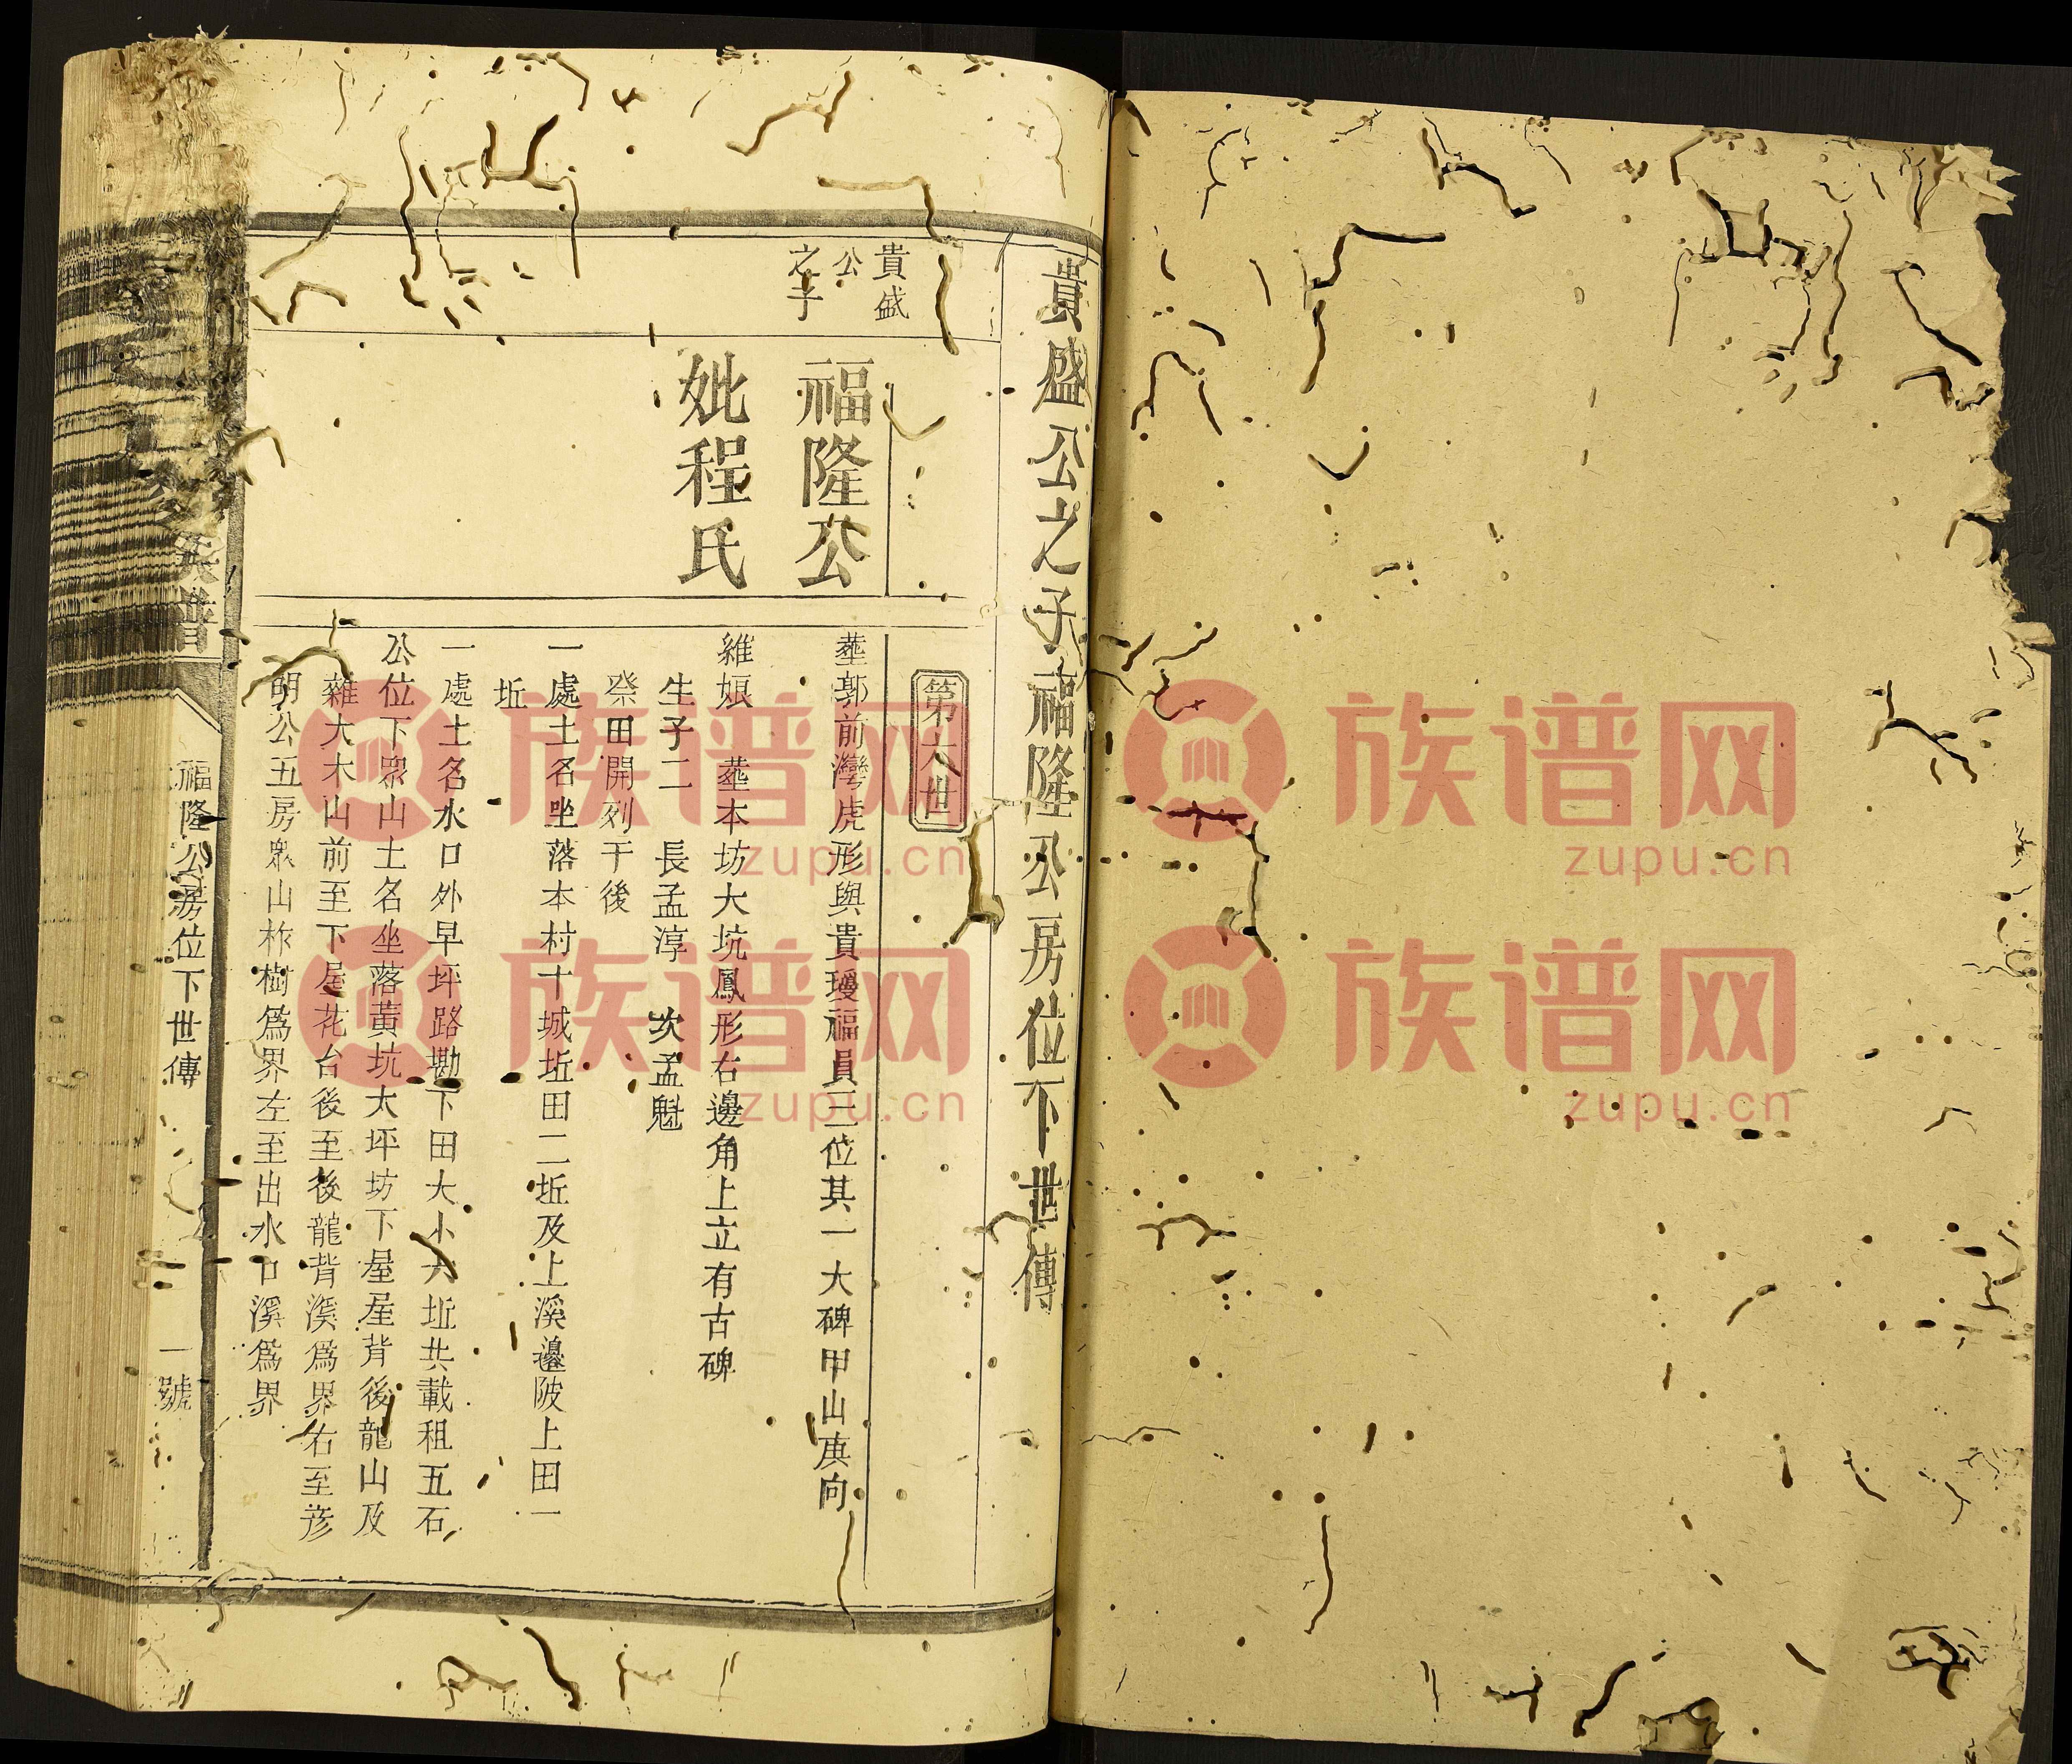 貴盛公之子福隆公房位下世傳
第六世
貴盛
公
之子
福隆公
妣程氏
塟郭前灣虎形與貴璦福員三位其一大碑甲山庚向
維娘　塟本坊大坑鳳形右邊角上立有古碑
生子二　長孟淳　次孟魁
祭田開列于後
一處土名坐落本村十城坵田二坵及上溪邊陂上田一
坵
一處土名水口外早坪路勘下田大小六坵共載租五石
公位下眾山土名坐落黃坑大坪坊下屋屋背後龍山及
雜大木山前至下屋花台後至後龍背漈爲界右至彦
明公五房眾山柞樹爲界左至出水口溪爲界
族譜
福隆公房位下世傳
一號
族谱网
zupu.cn
族谱网
zupu.cn
族谱网
zupu.cn
族谱网
zupu.cn